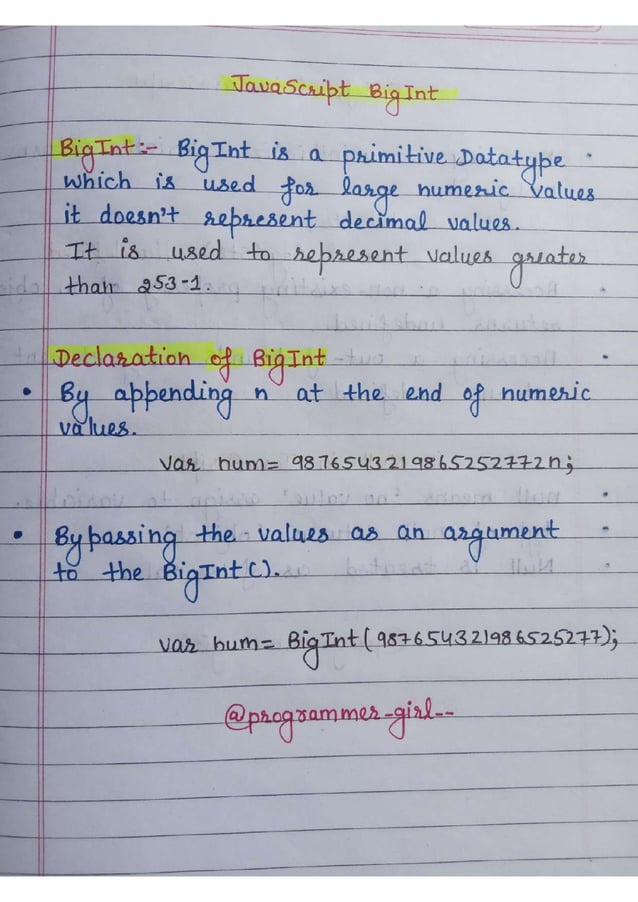 JavaScript BigInt
BigInt:- BigInt is a primitive Datatype
which is used for large numeric values
it doesn't represent decimal values.
It is used to represent values greater
than 253-1.
Declaration of BigInt
• By appending n at the end of numeric
values.
var num= 98765432198652527 72n;
• By passing the values as an argument
to the BigInt().
var num= BigInt(987654321986525277);
@programmer-girl--